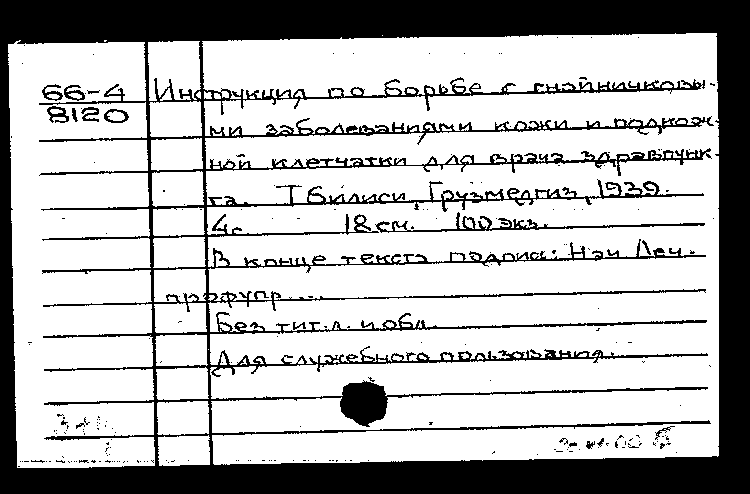 66-4 Инструкция по борьбе с гнойничковы-
8120
ми заболеваниями кожи и подкож-
ной клетчатки для врача здравпунк-
та. Тбилиси, Грузмедгиз, 1939.
4с. 18 см. 100 экз.
В конце текста подпись: Нач. Леч.
профупр....
Без тит.л. и обл.
Для служебного пользования.